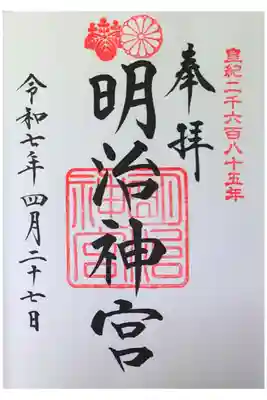 皇紀二千六百八十五年
奉拝
明治神宮
明治神宮
令和七年 四月二十七日